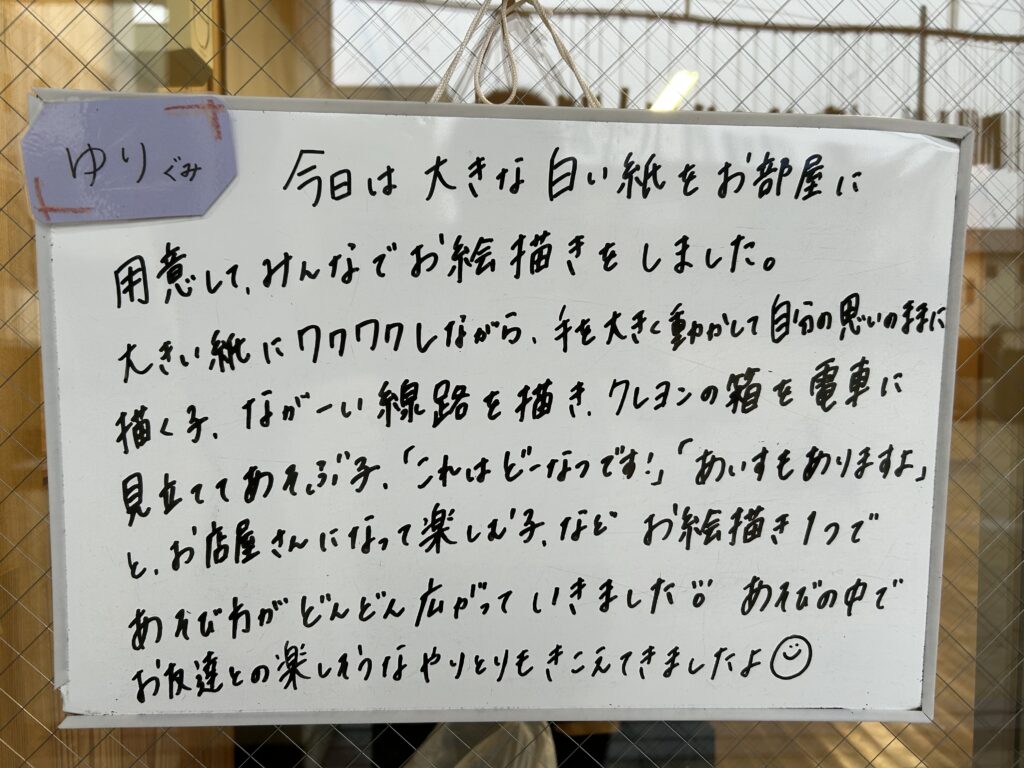 ゆりぐみ
今日は大きな白い紙をお部屋に
用意して、みんなでお絵描きをしました。
大きい紙にワクワクしながら、手を大きく動かして自分の思いのままに
描く子、ながーい線路を描き、クレヨンの箱を電車に
見立ててあそぶ子、「これはどーなつです!」「あいすもありますよ」
と、お店屋さんになって楽しむ子、など お絵描き1つで
あそび方がどんどん広がっていきました!!。 あそびの中で
お友達との楽しそうなやりとりもきこえてきましたよ☺